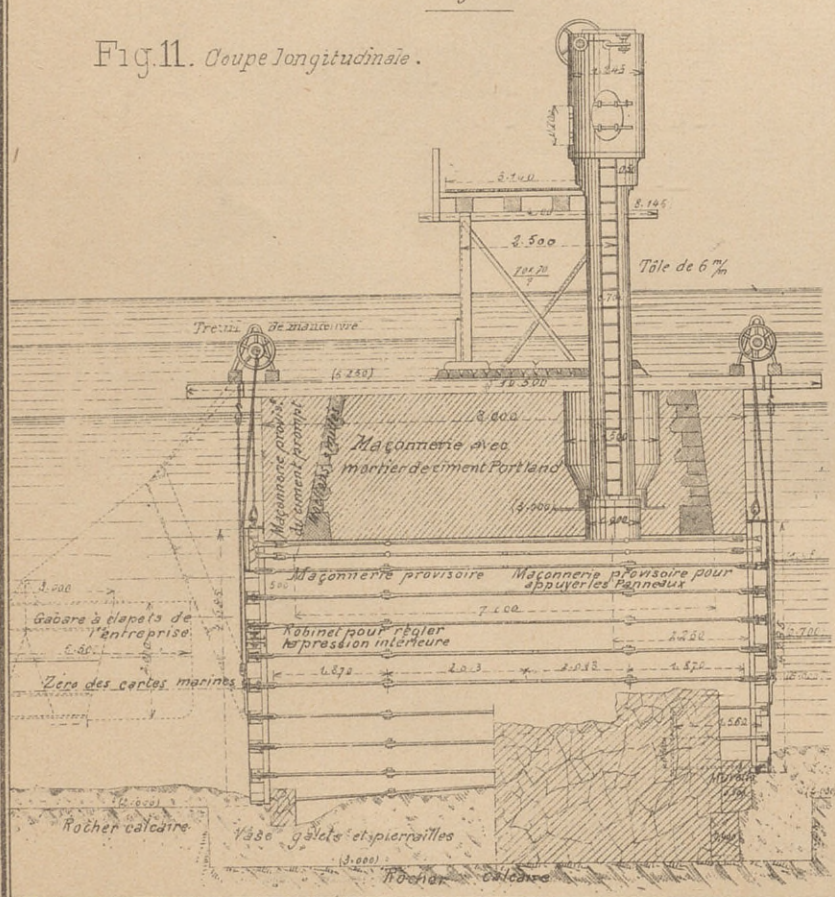 Fig.11. Coupe longitudinale.
1.245
3.140
8.146
2.500
70×70
Tôle de 6 m/m
Treuil de manœuvre
(5.250)
10.500
8.000
Maçonnerie provis.re
du ciment prompt
Maçonnerie avec
mortier de ciment Portland
(3.000)
Maçonnerie provisoire
Maçonnerie provisoire pour
appuyer les Panneaux
500
3.000
Gabare à clapets de
l'entreprise
6.50
Robinet pour régler
la pression intérieure
2.250
Zéro des cartes marines
1.870
2.013
2.013
1.870
1.560
(2.000)
Rocher calcaire
Vase galets et pierrailles
(3.000)
Rocher calcaire